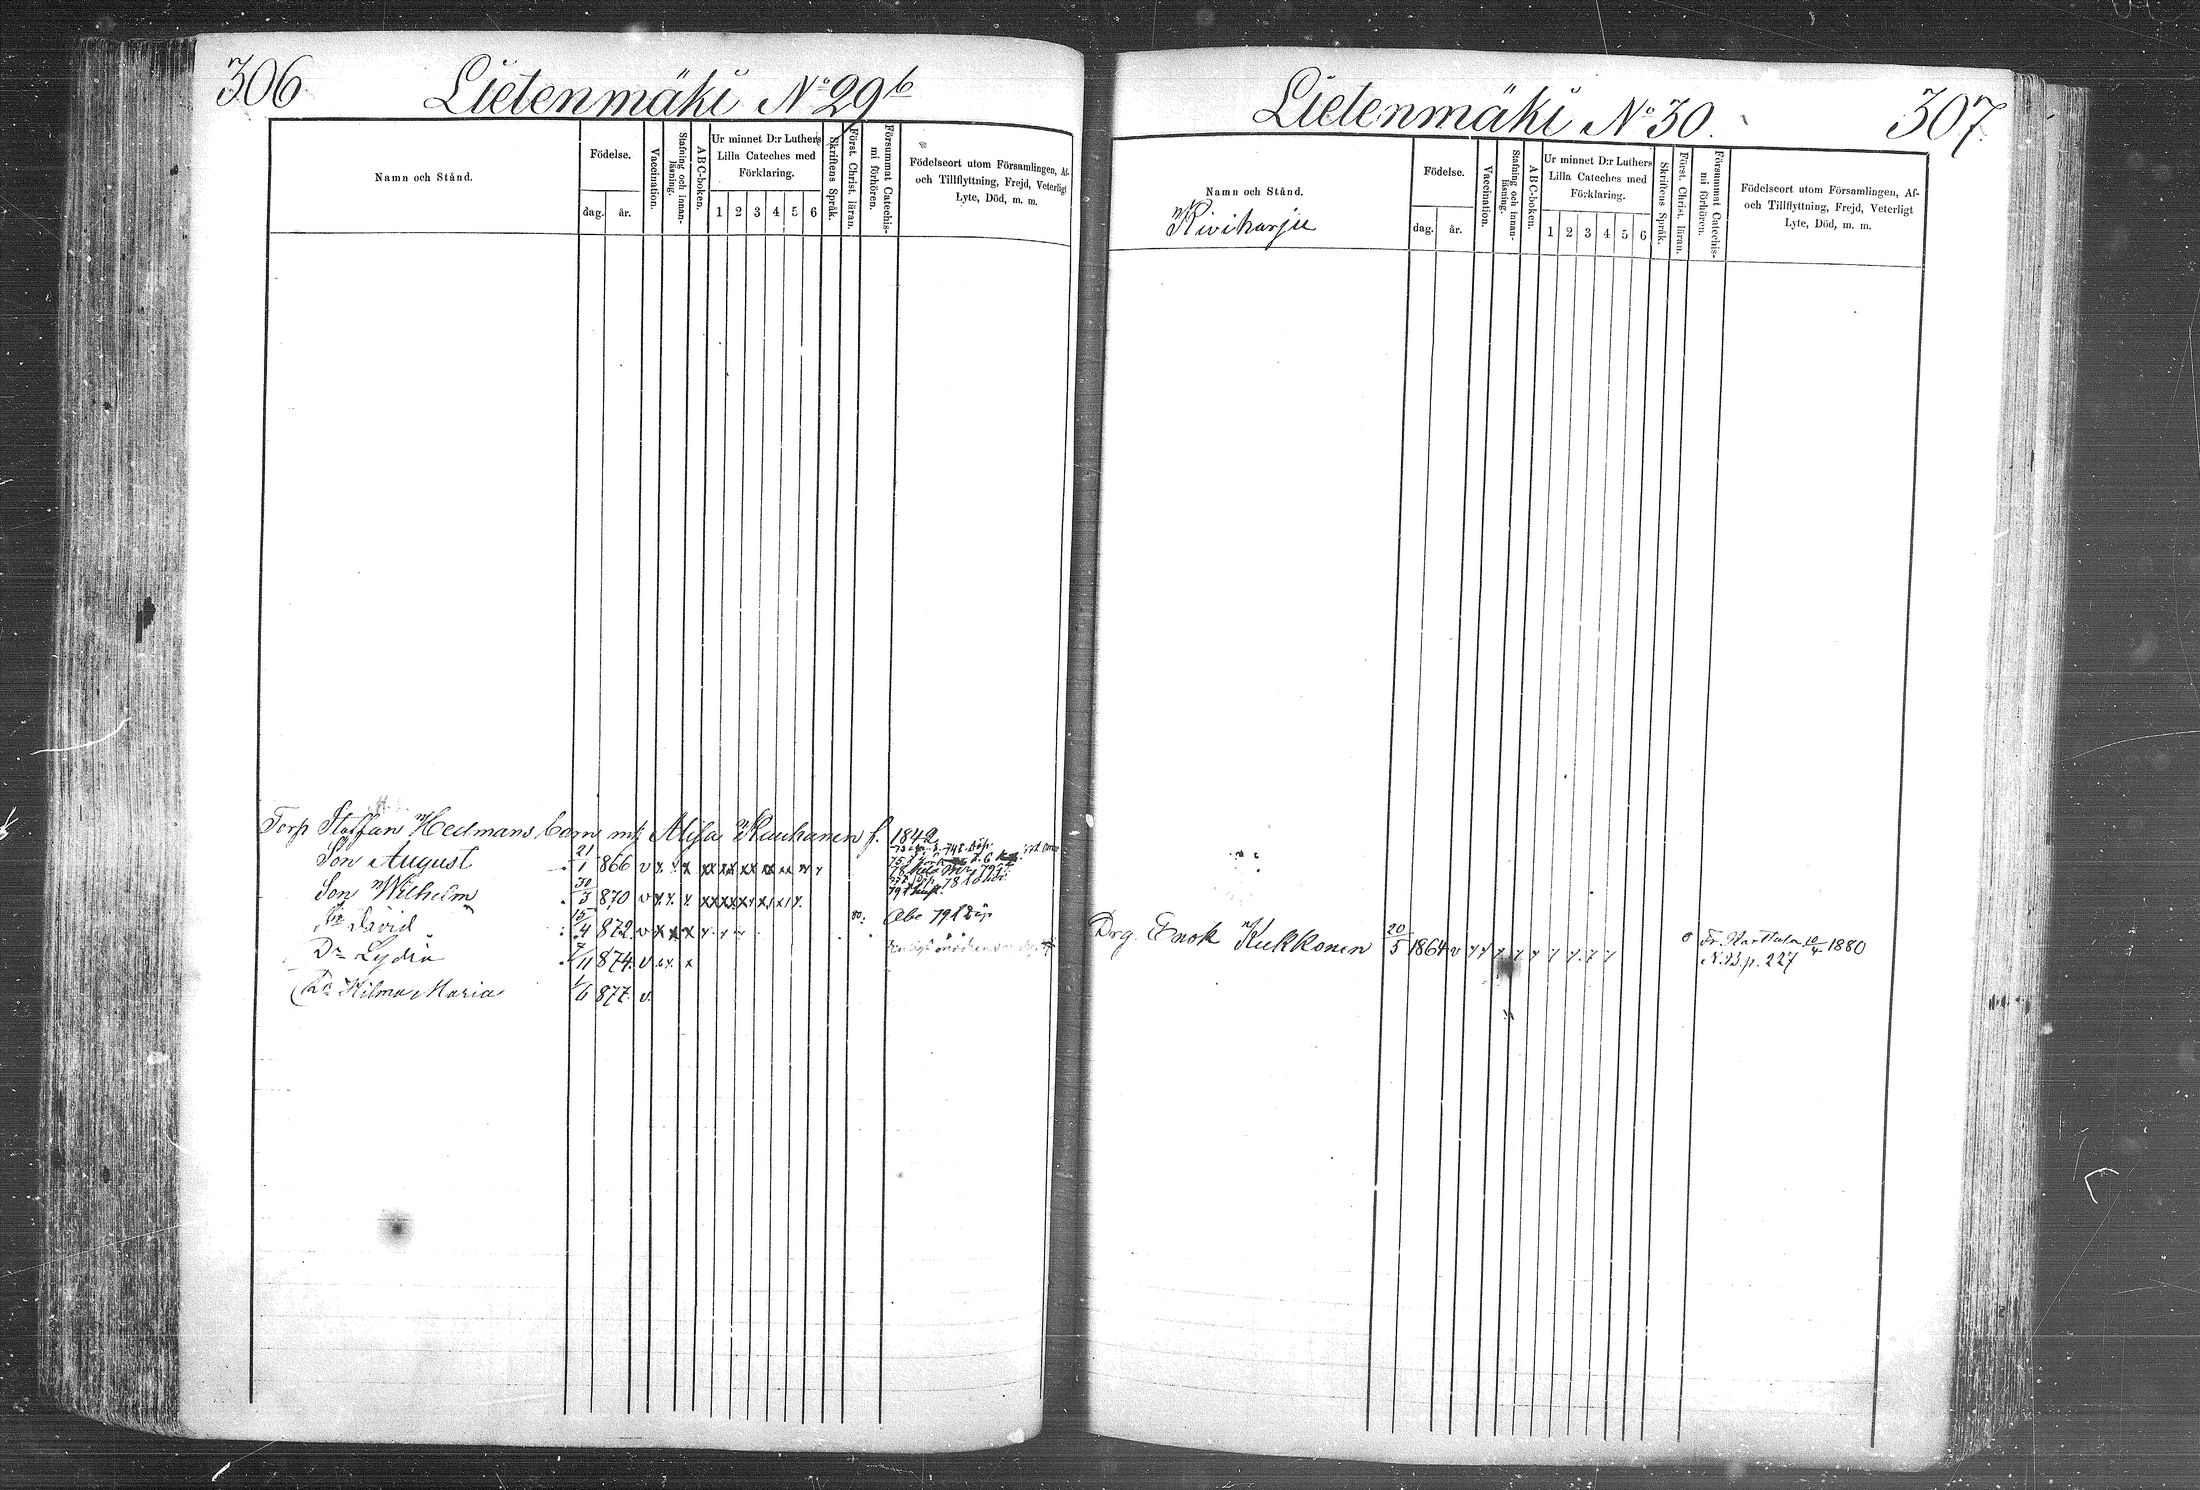 306
Lietenmäki No 29b
Namn och Stånd.
Födelse.
dag. år.
Vaccination.
Stafning och innan-läsning.
ABC-boken.
Ur minnet D:r Luthers
Lilla Cateches med
Förklaring.
1 2 3 4 5 6
Skriftens Språk.
Först. Christ. läran.
Försummat Catechis-mi förhören.
Födelseort utom Församlingen, Af-
och Tillflyttning, Frejd, Veterligt
Lyte, Död, m. m.
Torp Staffan Hedmans barn m: Alisa Kauhanen f. 1842
Son August 21/1 866 v
Son Wilhelm 30/3 870 v
Sn David 15/4 872 v 80. Obe 79
Dr Lydia 7/11 874 v
Dr Hilma Maria 1/6 877 v.
Lietenmäki No 30.
307.
Namn och Stånd.
Kiviharju
Födelse.
dag. år.
Vaccination.
Stafning och innan-läsning.
ABC-boken.
Ur minnet D:r Luthers
Lilla Cateches med
Förklaring.
1 2 3 4 5 6
Skriftens Språk.
Först. Christ. läran.
Försummat Catechis-mi förhören.
Födelseort utom Församlingen, Af-
och Tillflyttning, Frejd, Veterligt
Lyte, Död, m. m.
Drg. Enok Kukkonen 20/5 1864 v Fr. Karttula 10/4 1880
N.B. p. 227